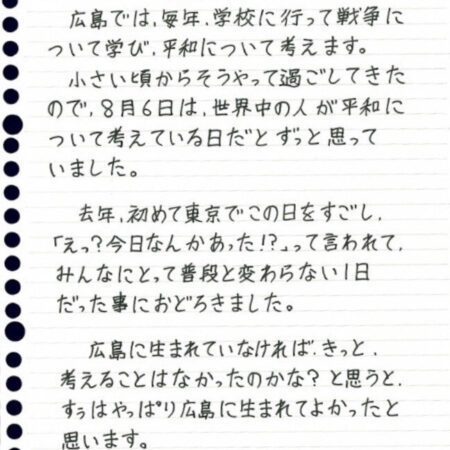 広島では,毎年,学校に行って戦争に
ついて学び,平和について考えます。
小さい頃からそうやって過ごしてきた
ので,8月6日は,世界中の人が平和に
ついて考えている日だと ずっと思って
いました。
去年,初めて東京でこの日をすごし,
「えっ?今日なんかあった!?」って言われて,
みんなにとって普段と変わらない1日
だった事におどろきました。
広島に生まれていなければ,きっと,
考えることはなかったのかな? と思うと,
すぅはやっぱり広島に生まれてよかったと
思います。